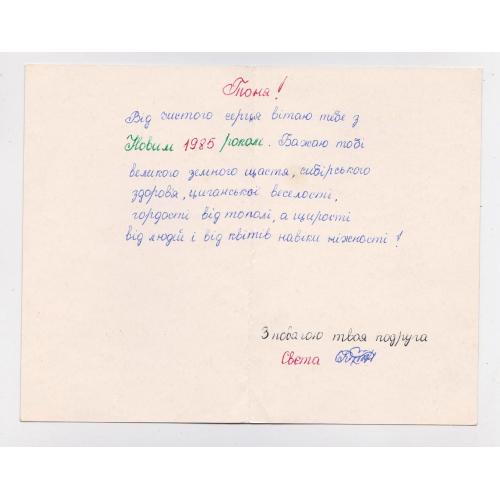 Тоня!
Від чистого серця вітаю тебе з
Новим 1985 роком. Бажаю тобі
великого земного щастя, сибірського
здоров'я, циганської веселості,
гордості від тополі, а щирості
від людей і від квітів навіки ніжності!
З повагою твоя подруга
Света